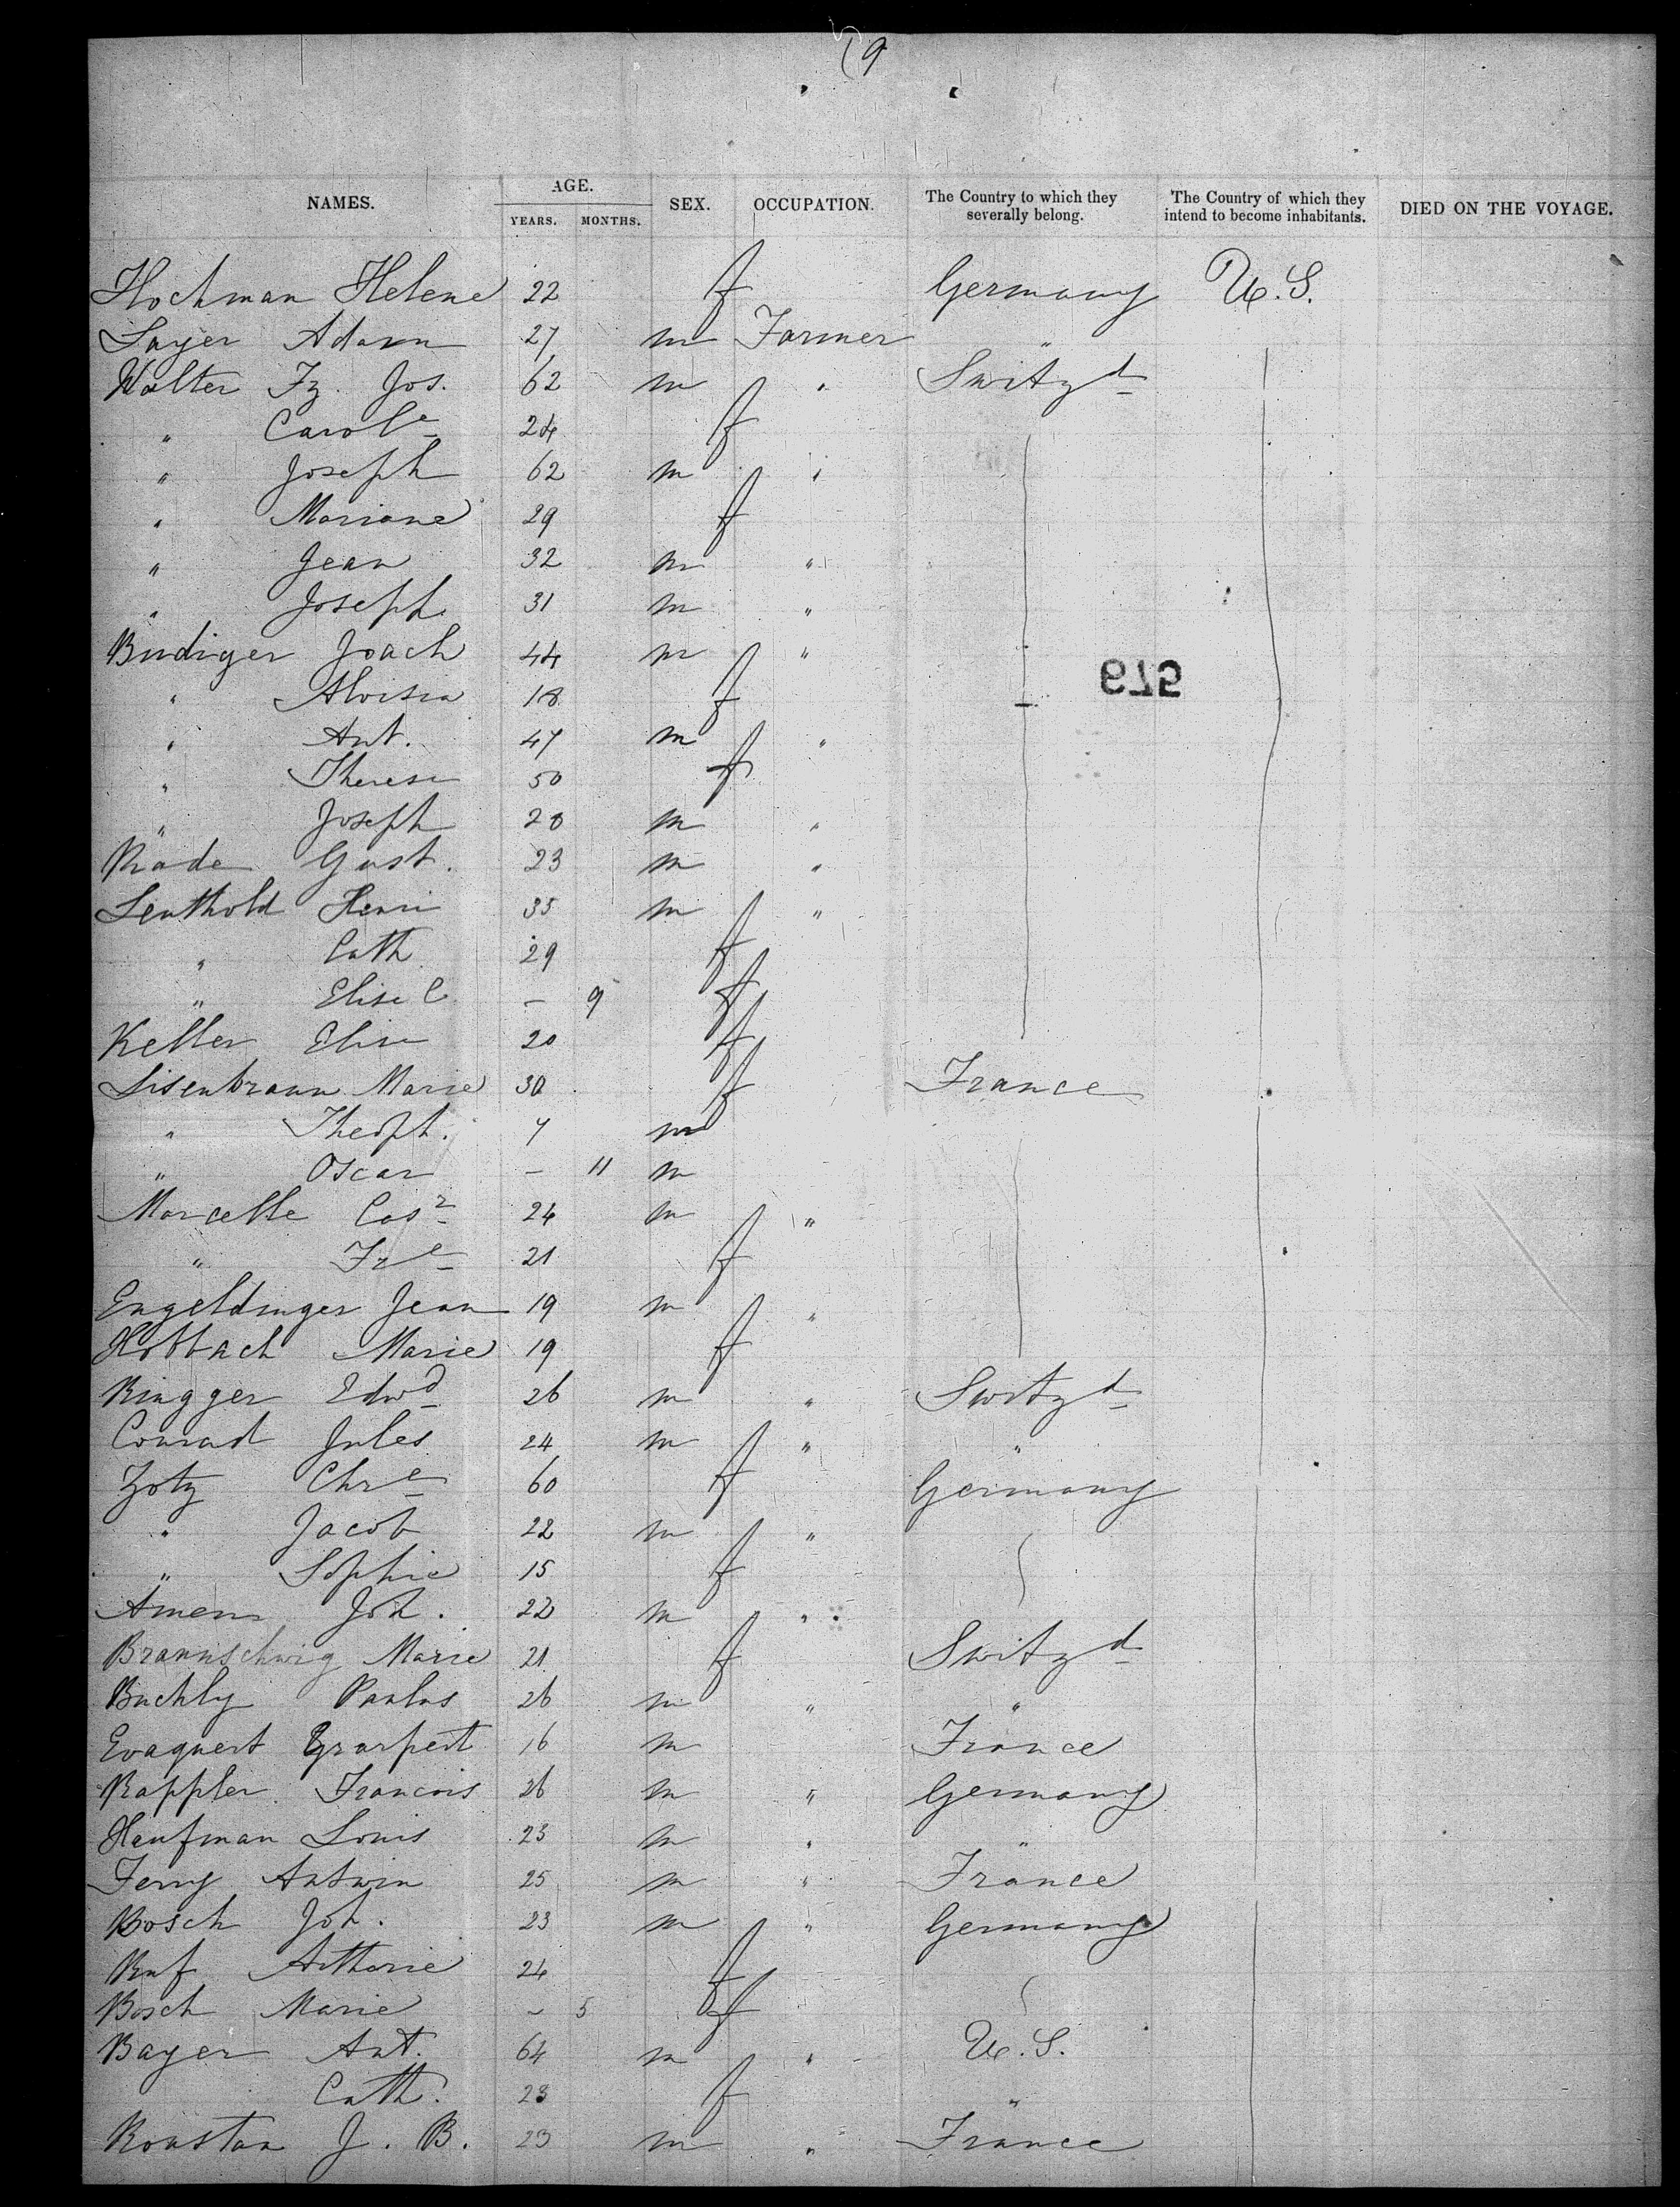 (9
NAMES. AGE. YEARS. MONTHS. SEX. OCCUPATION. The Country to which they severally belong. The Country of which they intend to become inhabitants. DIED ON THE VOYAGE.
Hochman Helene 22 f Germany U.S.
Sayer Adam 27 m Farmer "
Walter Fz. Jos. 62 m " Switzd
" Carole 24 f
" Joseph 62 m "
" Mariane 29 f
" Jean 32 m "
" Joseph 31 m "
Budiger Joach 44 m "
" Aloisia 18 f
" Ant. 47 m "
" Therese 50 f
" Joseph 28 m "
Rade Gust. 23 m "
Leuthold Henri 35 m "
" Cath 29 f
" Elise C. – 9 f
Keller Elise 20 f
Lisenbraun Marie 30 f France
" Theoph. 7 m
" Oscar – 11 m
Marcelle Casr 24 m "
" Fre 21 f
Engeldinger Jean 19 m "
Hobbach Marie 19 f
Ringger Edwd 26 m " Switzd
Conrad Jules 24 m " "
Zotz Chre 60 f Germany
" Jacob 22 m "
" Sophie 15 f
Amen Joh. 22 m "
Braunschwig Marie 21 f Switzd
Buchly Paulus 26 m " "
Evaquert 16 m France
Rappler Francois 26 m " Germany
Haufman Louis 23 m " "
Ferry Antwin 25 m " France
Bosch Joh. 23 m " Germany
Ruf 24 f
Bosch Marie – 5 f
Bayer Ant. 64 m " U.S.
Cath. 23 f "
Roustan J. B. 23 m " France
579